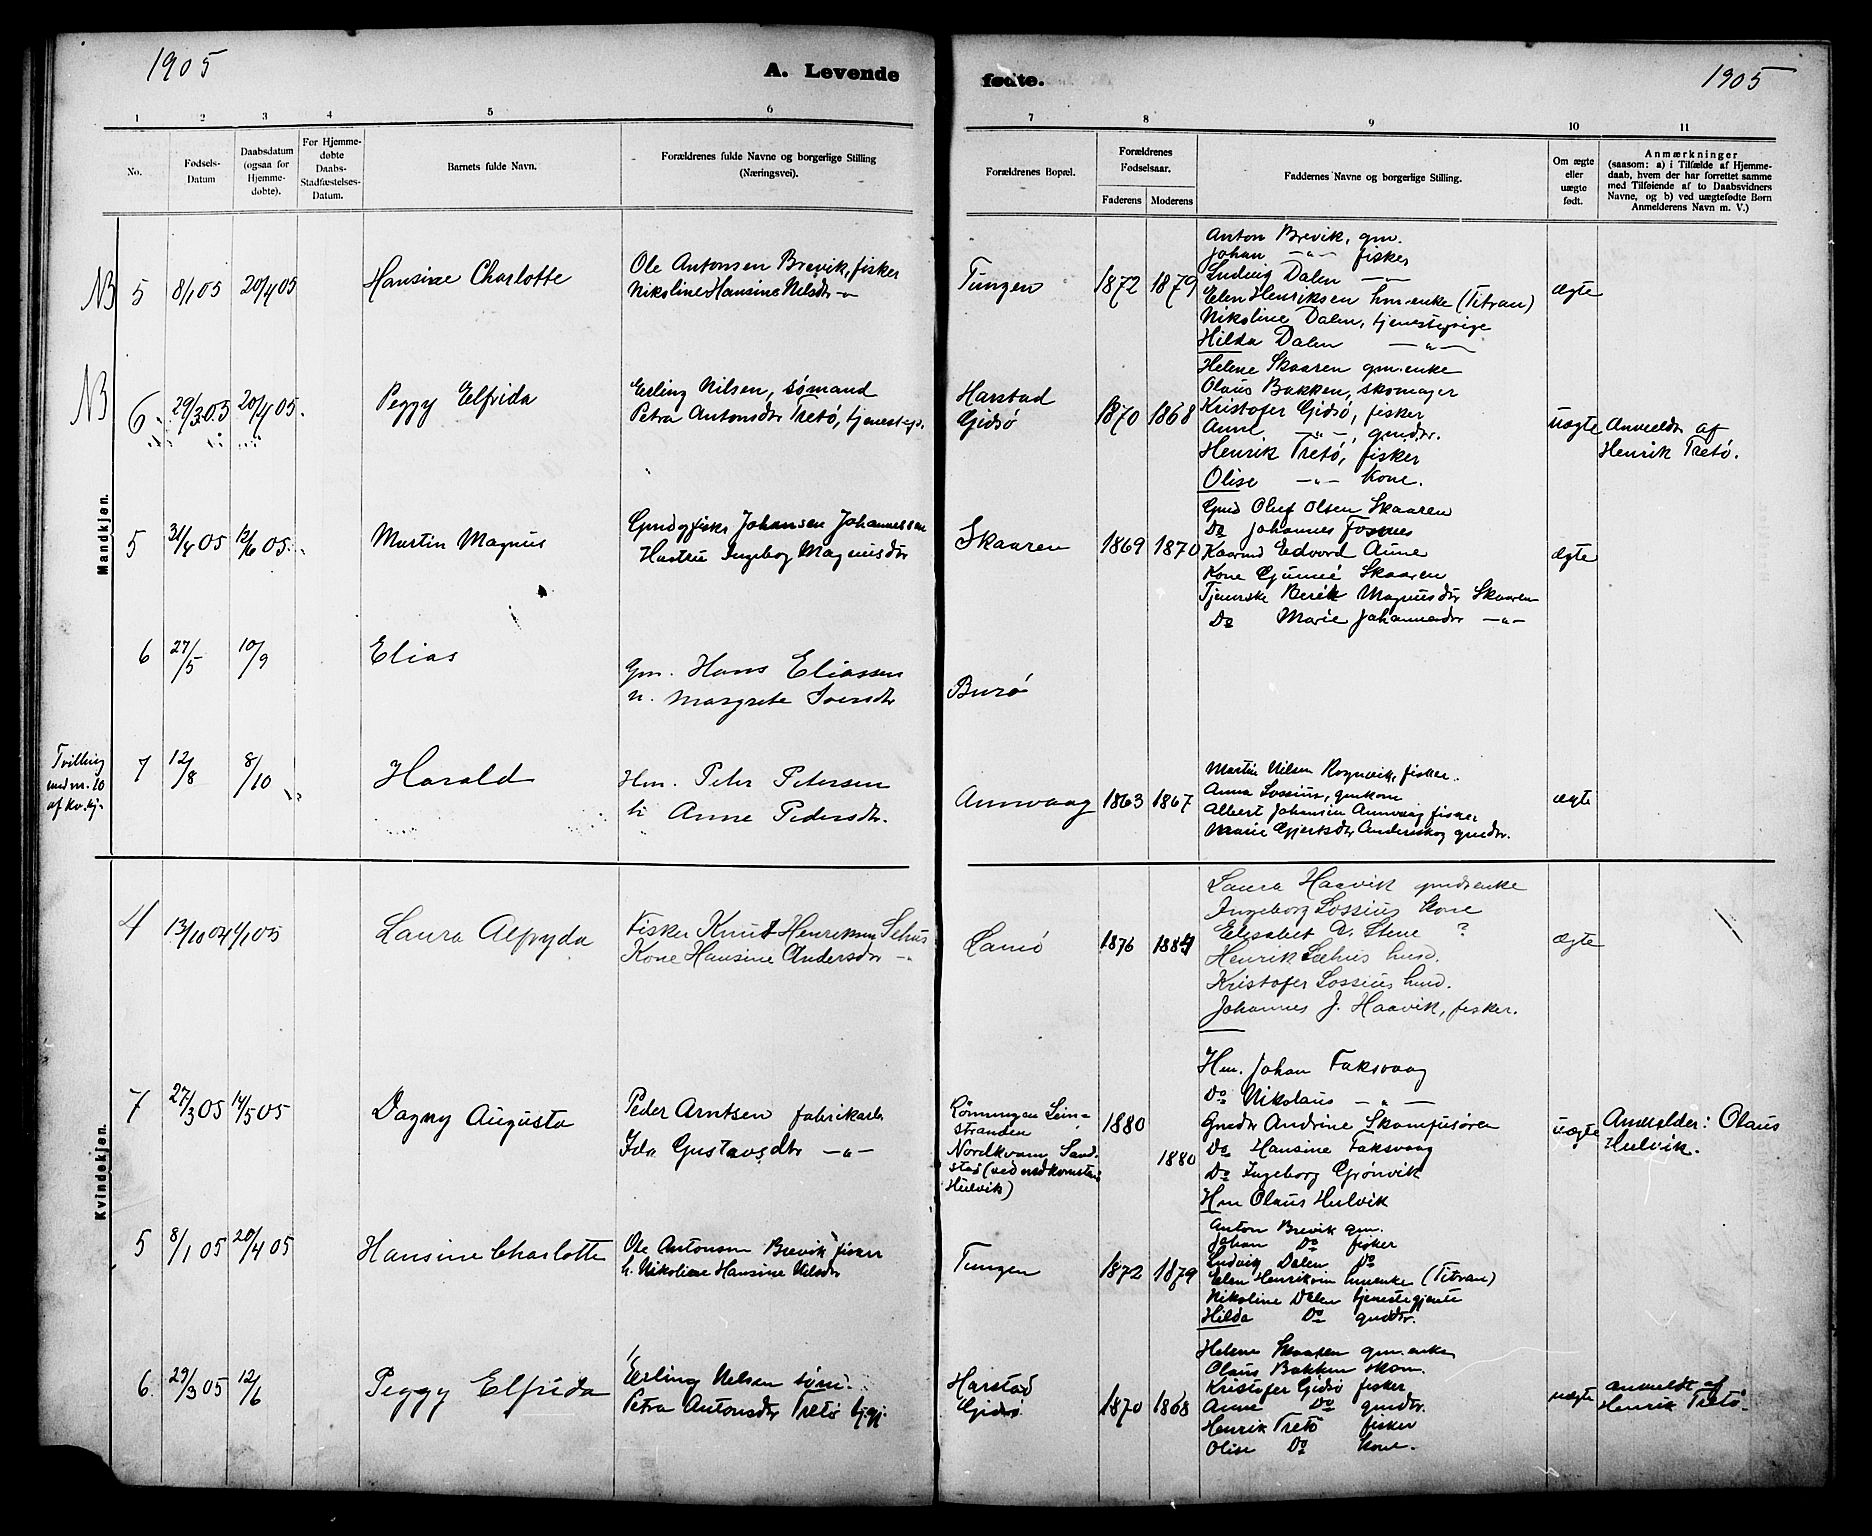 1905
A. Levende
fødte.
1905
1 2 3 4 5 6 7 8 9 10 11
No.
Fødsels-
Datum
Daabsdatum
(ogsaa før
Hjemme-
døbte).
For Hjemme-
døbte
Daabs-
Stadfæstelses-
Datum.
Barnets fulde Navn.
Forældrenes fulde Navne og borgerlige Stilling
(Næringsvei).
Forældrenes Bopæl.
Forældrenes
Fødselsaar.
Faderens Moderens
Faddernes Navne og borgerlige Stilling.
Om ægte
eller
uægte
født.
Anmærkninger
(saasom: a) i Tilfælde af Hjemme-
daab, hvem der har forrettet samme
med Tilføiende af to Daabsvidners
Navne, og b) ved uægtefødte Børn
Anmelderens Navn m. V.)
Mandkjøn.
NB 5 8/1 05 20/4 05 Hansine Charlotte
Ole Antonsen Brevik, fisker
Nikoline Hansine Nilsdr -"-
Tungen 1872 1879
Anton Brevik, gm.
Johan -"- fisker
Ludvig Dalen -"-
Elen Henriksen hm.enke (Titran)
Nikoline Dalen, tjenestepige
Hilda Dalen -"-
ægte
NB 6. 29/3 05 20/4 05. Peggy Elfrida
Erling Nilsen, sømand
Petra Antonsdr Tretø, tjenestep.
Harstad
Gidsø
1870 1868
Helene Skaaren gm.enke
Olaus Bakken, skomager
Kristofer Gidsø, fisker
Anne -"-, gmdr.
Henrik Tretø, fisker
Olise -"- Kone.
uægte
Anmeldt af
Henrik Tretø.
5 31/4 05 12/6 05. Martin Magnus
Gmd og fisker Johansen Johannessen
Hustru Ingeborg Magnusdr
Skaaren 1869 1870
Gmd Oluf Olsen Skaaren
Do Johannes Fosnes
Edvard Aune
Kone Skaaren
Magnusdr Skaaren
Do Marie Johannesdr -"-
ægte
6 27/5 10/9 Elias
Gm. Hans Eliassen
h. Margrete Iversdr
Burø
Tvilling
med nr. 10
af kv.kj.
7 12/8 8/10 Harald
Hm. Peter Petersen
h. Anne Pedersdr.
Aunvaag 1863 1867
Martin Nilsen Rognvik, fisker.
Anna Lossius, gmkone
Albert Johansen Aunvaag fisker
Marie Gjertsdr Anderskog gmdr.
ægte
Kvindekjøn.
4 13/10 04 6/1 05 Laura Alfryda
Fisker Knut Henriksen Sehus
Kone Hansine Andersdr -"-
Lamø 1876 1884
Laura Haavik gmdsenke
Ingeborg Lossius Kone
Elisabet D. Stene ?
Henrik Sæhus husm.
Kristofer Lossius husm.
Johannes J. Haavik, fisker.
ægte
7 27/3 05 14/5 05 Dagny Augusta
Peder Arntsen fabrikarb.
Ida Gustavsdtr -"-
Rømmingen Lein-
stranden
Nordkvam Sand-
stad (ved nedkomsten
Hulvik)
1880
1880
Hm. Johan Faksvaag
Do Nikolaus -"-
Gmdr Andrine Skompusøren
Do Hansine Faksvaag
Do Ingeborg Grønvik
Hm Olaus Hulvik
uægte
Anmelder: Olaus
Hulvik.
5 8/1 05 20/4 05 Hansine Charlotte
Ole Antonsen Brevik fisker
h. Nikoline Hansine Nilsdr
Tungen 1872 1879
Anton Brevik gm.
Johan Do fisker
Ludvig Dalen Do
Elen Henriksen hmenke (Titran)
Nikoline Dalen tjenestegjente
Hilda Do gmdtr.
6. 29/3 05 12/6 Peggy Elfrida
Erling Nilsen søm.
Petra Antonsdr Tretø tj.gj.
Harstad
Gidsø
1870 1868
Helene Skaaren gm.enke
Olaus Bakken skom.
Kristofer Gidsø fisker
Anne Do gmdtr.
Henrik Tretø fisker
Olise Do Kone.
uægte
anmeldt af
Henrik Tretø.